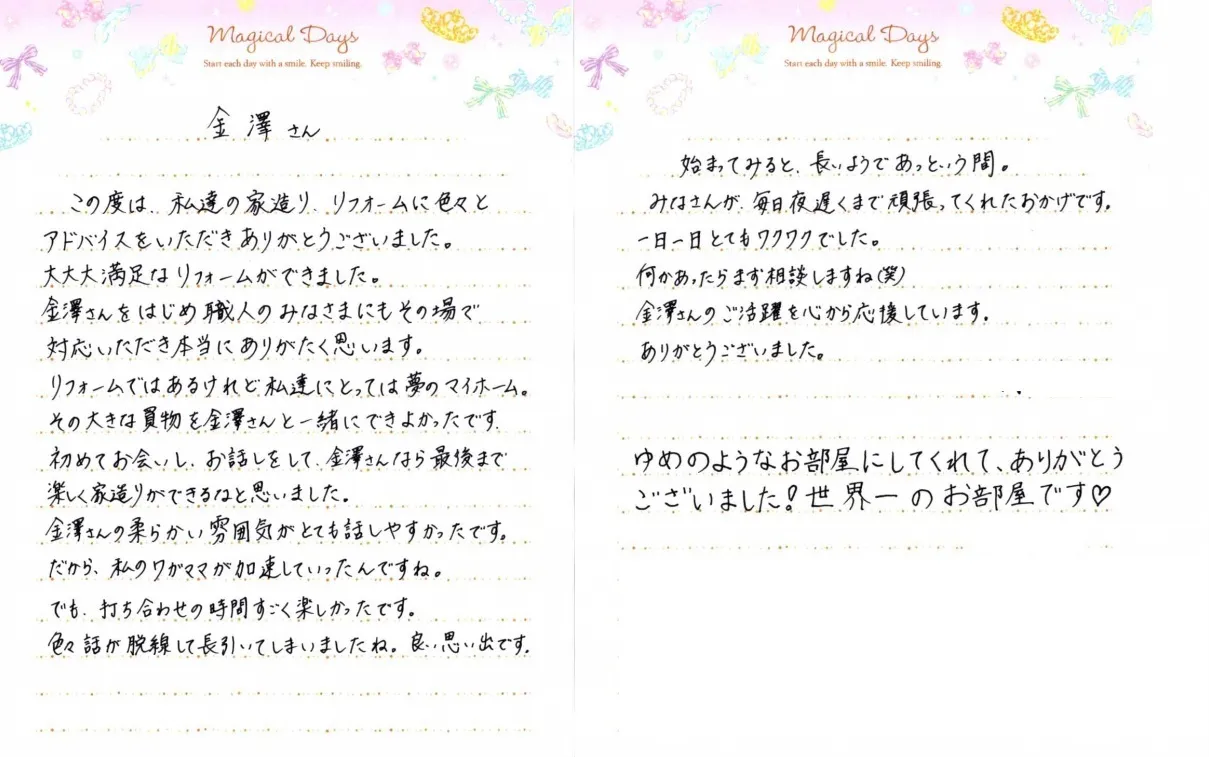 Magical Days
Start each day with a smile. Keep smiling.
金澤さん
この度は、私達の家造り、リフォームに色々と
アドバイスをいただきありがとうございました。
大大大満足なリフォームができました。
金澤さんをはじめ職人のみなさまにもその場で
対応いただき本当にありがたく思います。
リフォームではあるけれど私達にとっては夢のマイホーム。
その大きな買物を金澤さんと一緒にできよかったです。
初めてお会いし、お話しをして、金澤さんなら最後まで
楽しく家造りができるなと思いました。
金澤さんの柔らかい雰囲気がとても話しやすかったです。
だから、私のワガママが加速していったんですね。
でも、打ち合わせの時間すごく楽しかったです。
色々話が脱線して長引いてしまいましたね。良い思い出です。
Magical Days
Start each day with a smile. Keep smiling.
始まってみると、長いようであっという間。
みなさんが、毎日夜遅くまで頑張ってくれたおかげです。
一日一日とてもワクワクでした。
何かあったらまず相談しますね(笑)
金澤さんのご活躍を心から応援しています。
ありがとうございました。
ゆめのようなお部屋にしてくれて、ありがとう
ございました!世界一のお部屋です♡